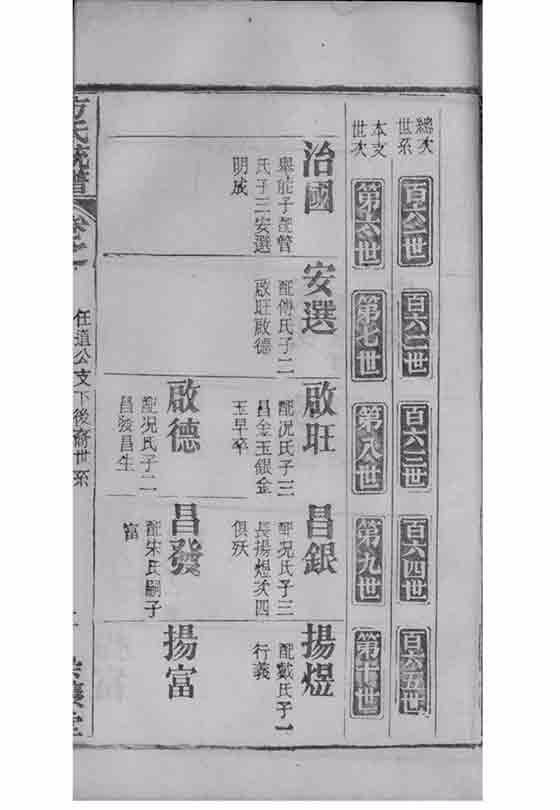 總次世系
百六一世
百六二世
百六三世
百六四世
百六五世
本支世次
第六世
第七世
第八世
第九世
第十世
治國
舉能子配管
氏子三安選
明成
安選
配傅氏子二
啟旺啟德
啟旺
配况氏子三
昌金玉銀金
玉早卒
啟德
配况氏子二
昌發昌生
昌銀
配况氏子三
長揚煜次四
俱殀
昌發
配宋氏嗣子
富
揚煜
配戴氏子一
行義
揚富
方氏統譜
任道公支下後裔世系